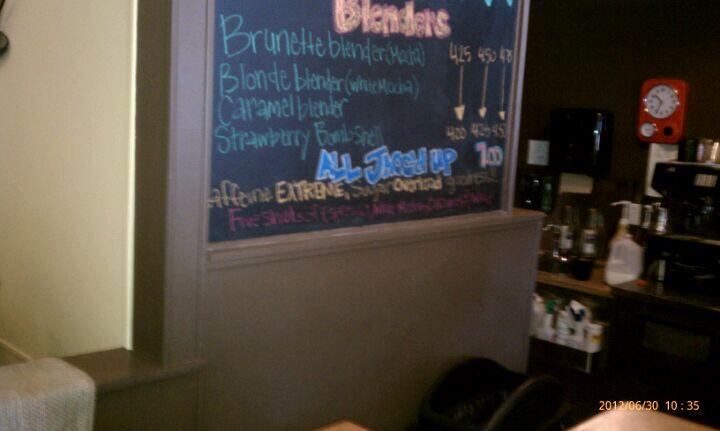 Blenders
Brunette blender (Mocha) 4.25 4.50 4.75
Blonde blender (White Mocha)
Caramel blender
Strawberry Bombshell 4.00 4.25 4.50
ALL JACC'd UP 7.00
Caffeine EXTREME, Sugar Overload goodness!!!
Five shots of Espresso, White Mocha, Caramel
2012/06/30 10:35